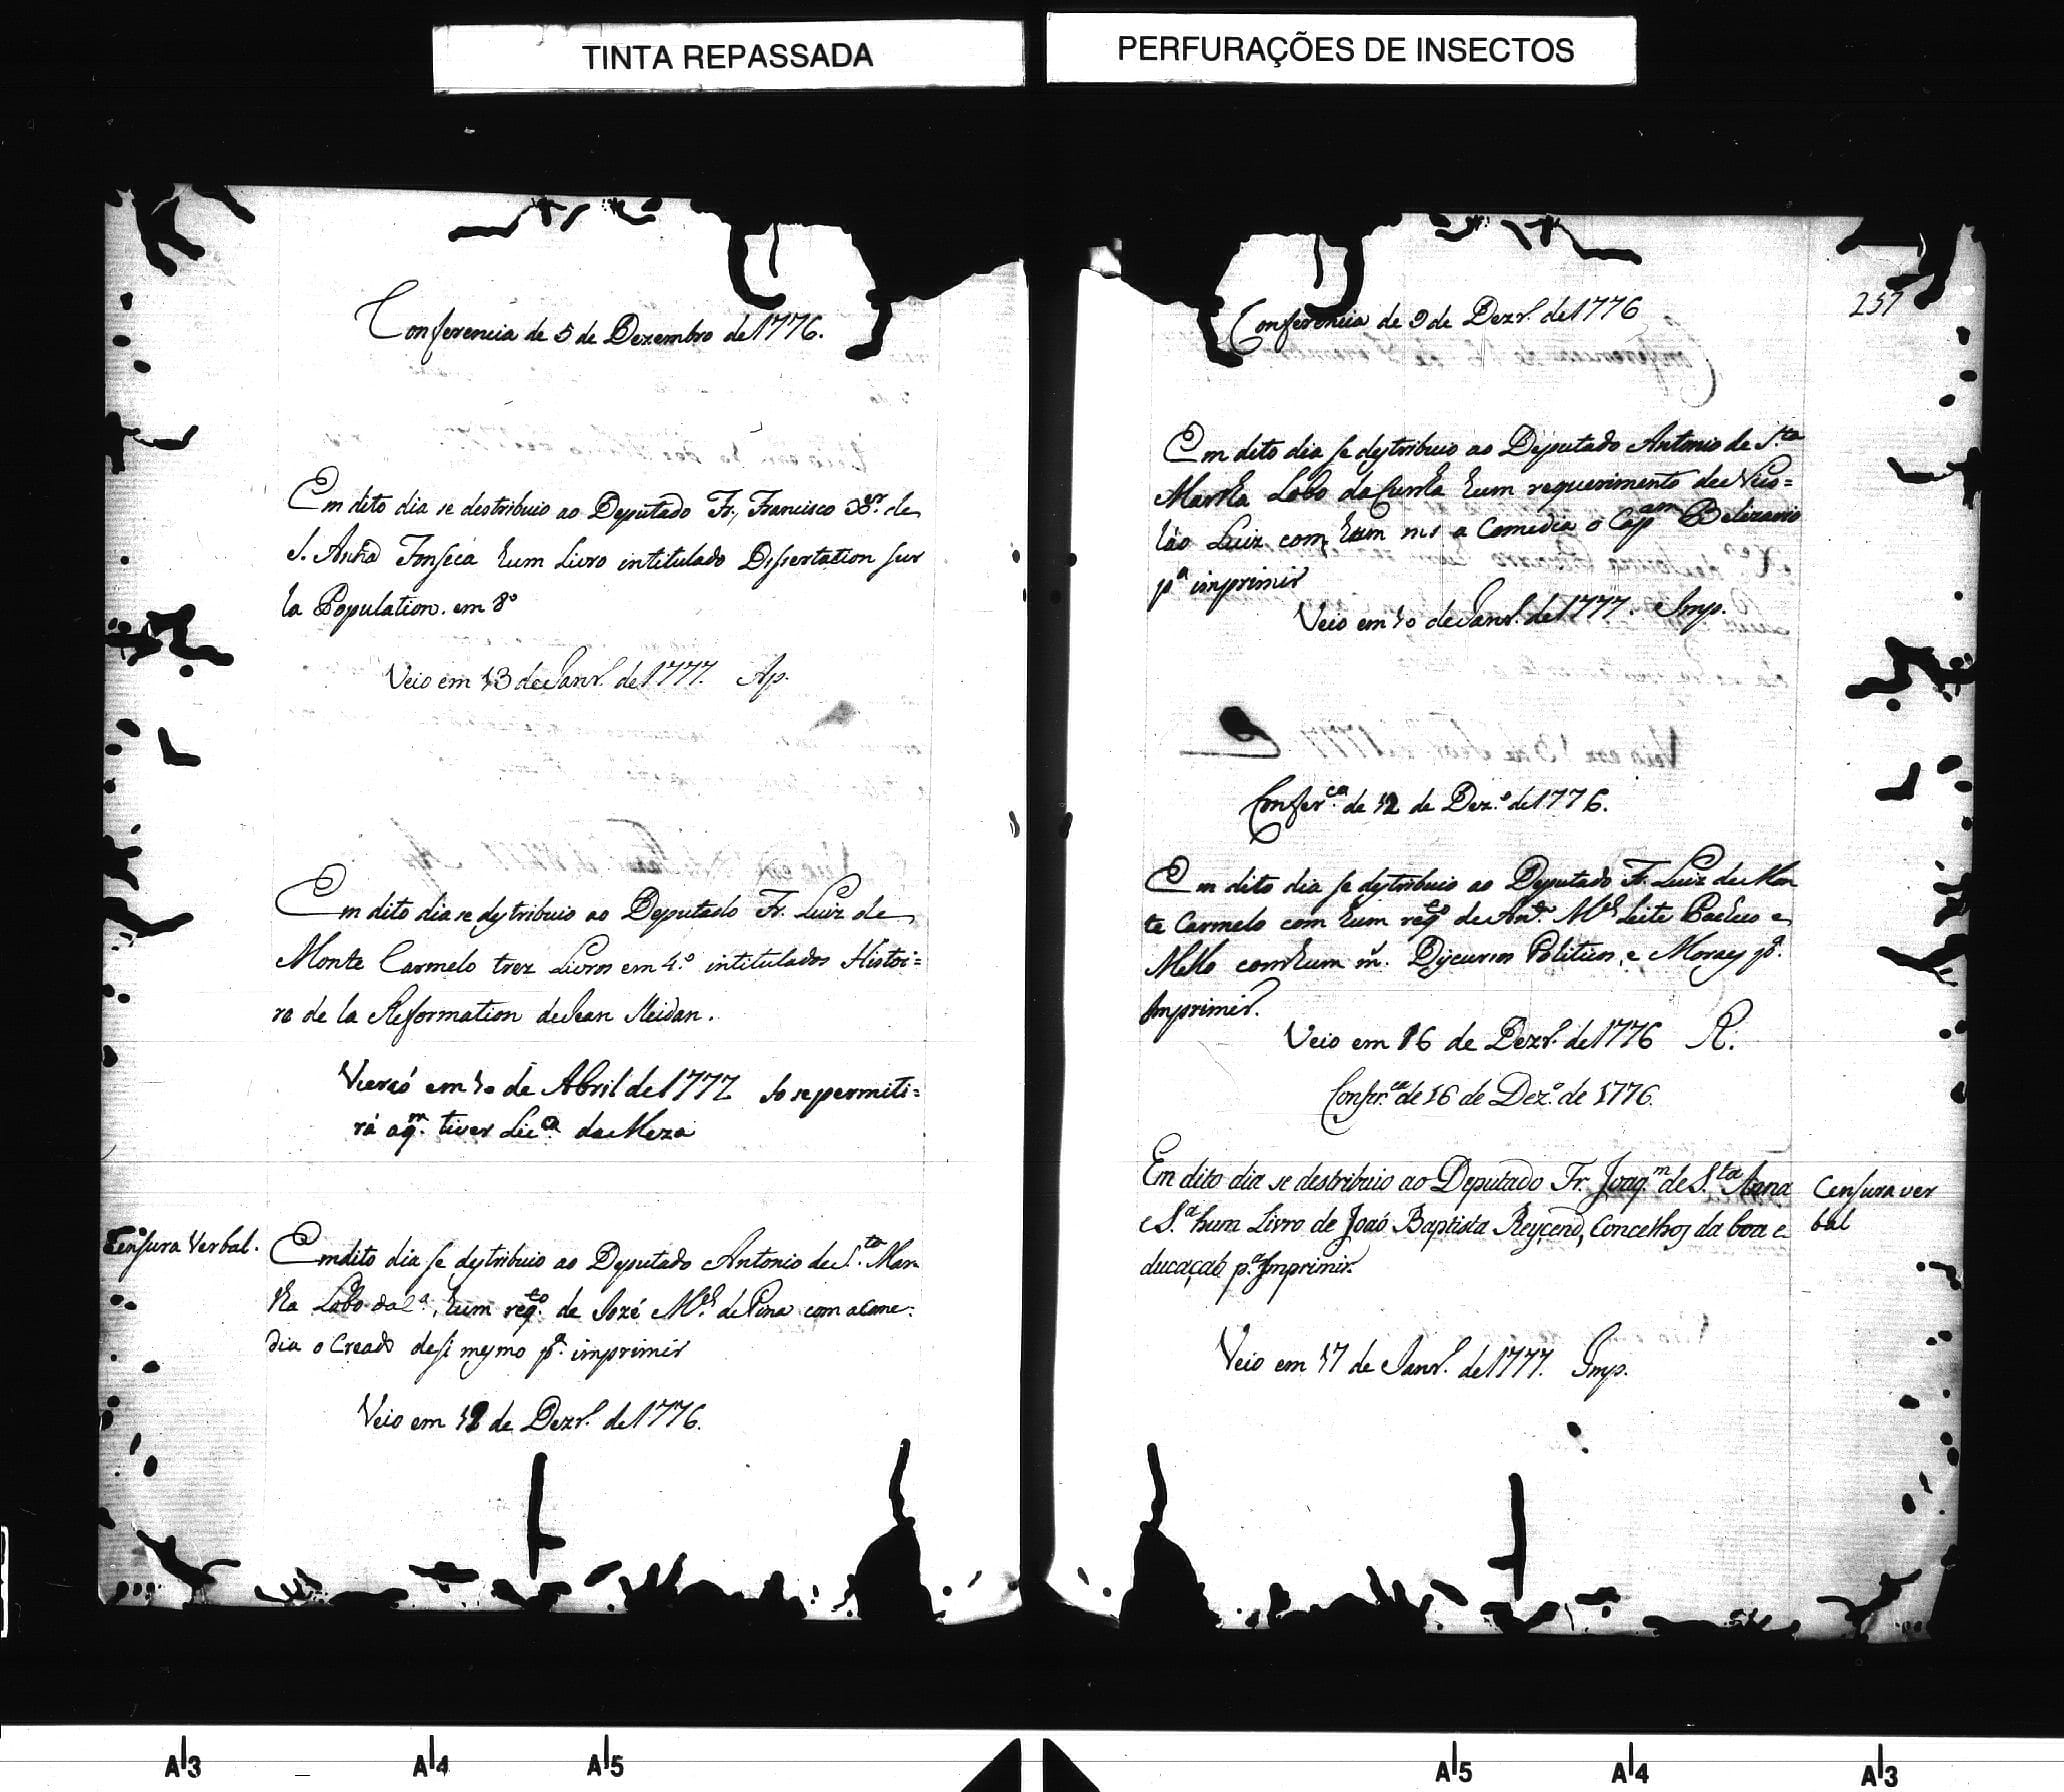 TINTA REPASSADA
PERFURAÇÕES DE INSECTOS
Conferencia de 5 de Dezembro de 1776.
Em dito dia se destribuio ao Deputado Fr. Francisco Xer. de
S. Anna Fonseca hum Livro intitulado Dissertation sur
la Population. em 8º
Veio em 13 de Janr.º de 1777. Ap.
Em dito dia se destribuio ao Deputado Fr. Luiz de
Monte Carmelo trez Livros em 4.º intitulados Histoi=
re de la Reformation de Jean Sleidan.
em 10 de Abril de 1777 So se permiti=
rá a q.m tiver Lic.ª da Meza
Censura Verbal.
Em dito dia se destribuio ao Deputado Antonio de S.ta Mar
tha Lobo da C.ª, hum reqº.to de Jozé M.el de Pina com a Come=
dia o Creado de si mesmo p.ª imprimir
Veio em 12 de Dezr.º de 1776.
257
Conferencia de 9 de Dezr.º de 1776
Em dito dia se destribuio ao Deputado Antonio de S.ta
Martha Lobo da Cunha hum requerimento de Nico=
láo Luiz com hum ms a Comedia o Cap.am Belizario
p.ª imprimir
Veio em 10 de Janr.º de 1777. Imp.
Confer.ca de 12 de Dez.º de 1776.
Em dito dia se destribuio ao Deputado Fr. Luiz de Mon
te Carmelo com hum reqº.to de And.e M.el Leite Pacheco e
Mello com hum m. Discursos Politicos, e Moraes p.ª
Imprimir.
Veio em 16 de Dezr.º de 1776 R.
Confer.ca de 16 de Dez.º de 1776.
Em dito dia se destribuio ao Deputado Fr. Joaq.m de S.ta Anna
e S.ª hum Livro de Joaõ Baptista Reycend, Concelhos da boa e
ducaçaõ p.ª Imprimir.
Censura ver
bal
Veio em 17 de Janr.º de 1777. Imp.
A3
A4
A5
A5
A4
A3